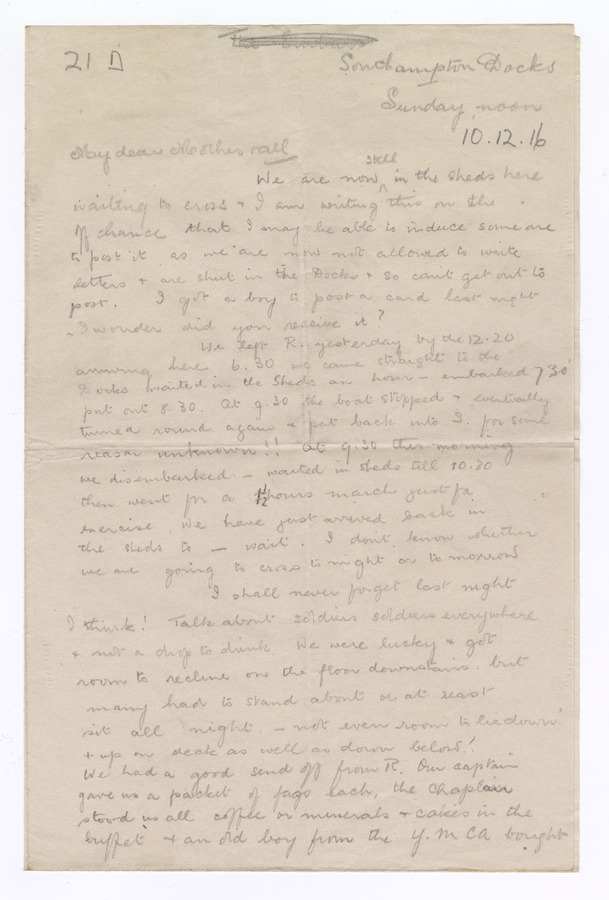 21 D
Southampton Docks
Sunday noon
10.12.16
My dear Mother & all
We are now still in the sheds here
waiting to cross & I am writing this on the
off chance that I may be able to induce someone
to post it as we are now not allowed to write
letters & are shut in the Docks & so can't get out to
post. I got a boy to post a card last night
- I wonder did you receive it?
We left R. yesterday by the 12.20
arriving here 6.30 we came straight to the
Docks waited in the sheds an hour - embarked 7.30
put out 8.30. At 9.30 the boat stopped & eventually
turned round again & put back into S. for some
reason unknown!! At 9.30 this morning
we disembarked - waited in sheds till 10.30
then went for a 1½ hours march just for
exercise. We have just arrived back in
the sheds to - wait. I don't know whether
we are going to cross to night or to morrow
I shall never forget last night
I think! Talk about soldiers soldiers everywhere
& not a drop to drink. We were lucky & got
room to recline on the floor downstairs but
many had to stand about or at least
sit all night - not even room to lie down!
& up on deck as well as down below!
We had a good send off from R. Our captain
gave us a packet of fags each, the Chaplain
stood us all coffee or minerals & cakes in the
buffet & an old boy from the Y.M.C.A bought